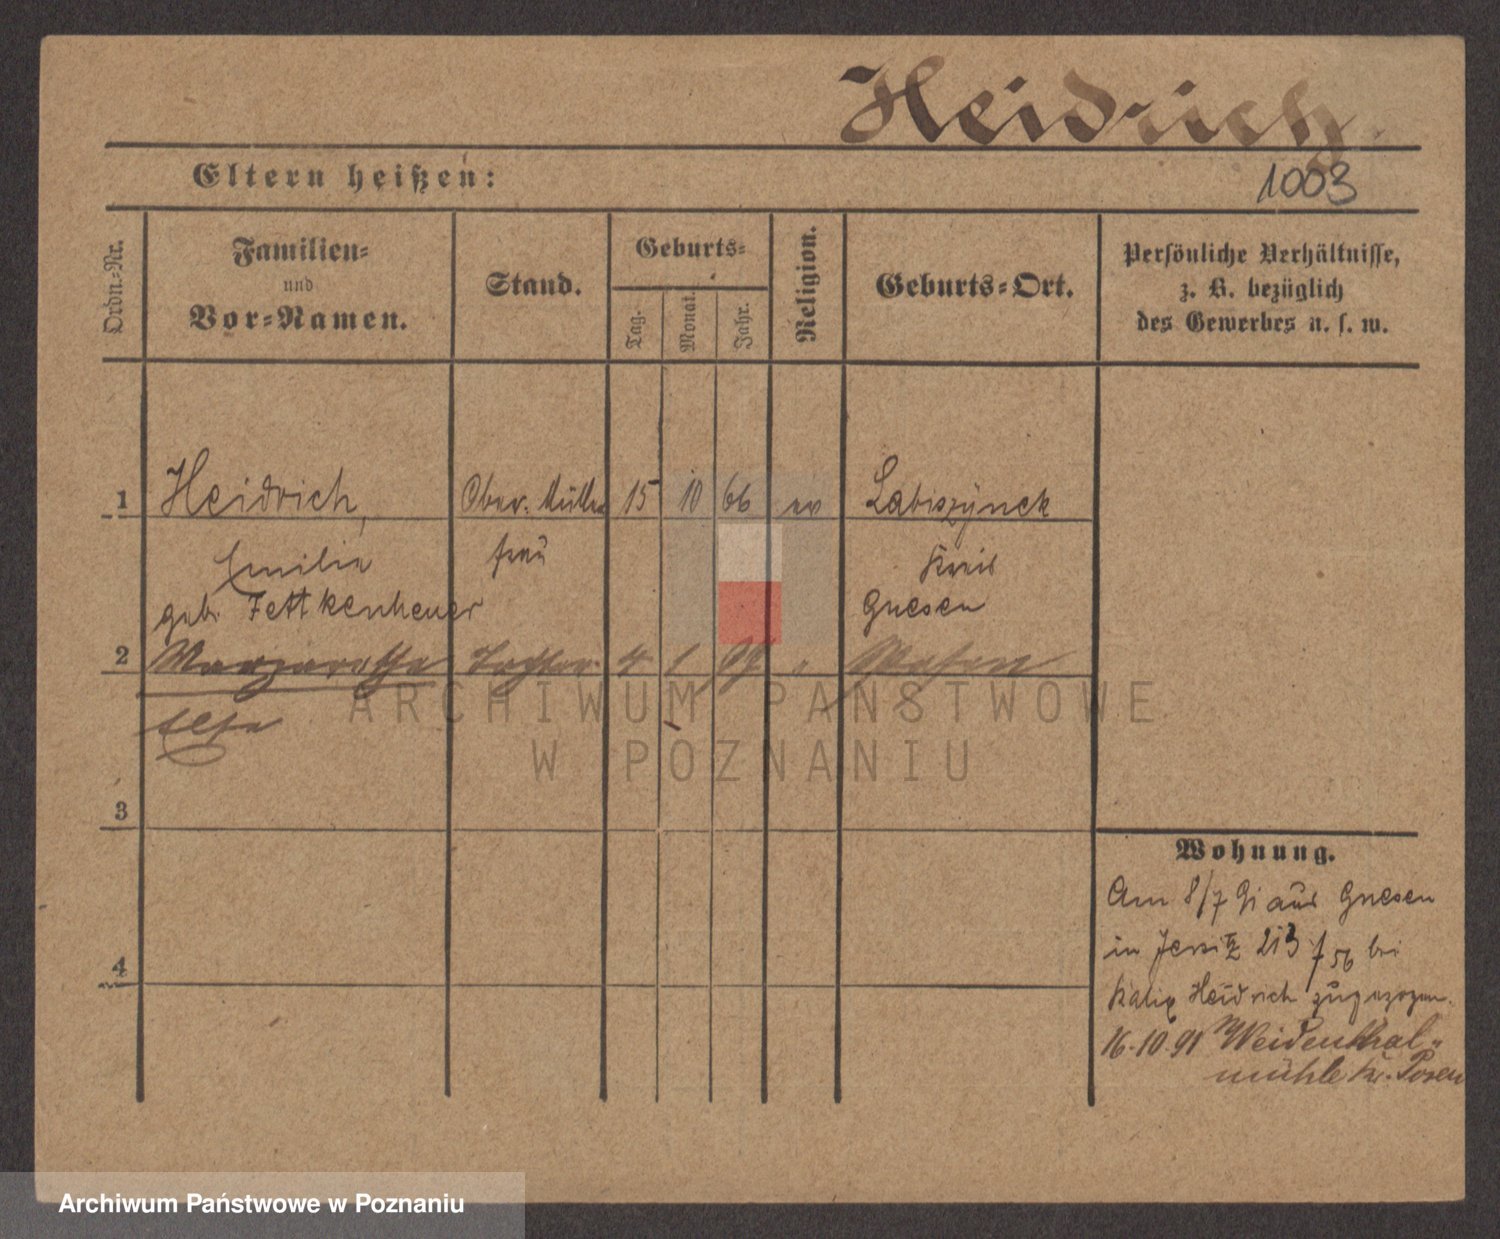 Heidrich
Eltern heißen:
1003
Ordn.-Nr.
Familien-
und
Vor-Namen.
Stand.
Geburts-
Tag.
Monat.
Jahr.
Religion.
Geburts-Ort.
Persönliche Verhältnisse,
z. B. bezüglich
des Gewerbes u. s. w.
1 Heidrich, Ober. Müller 15 10 66 ev Labiszynek
Emilie frau Kreis
geb. Fettkenheuer Gnesen
2 Margarethe Tochter 4 1 Posen
Else
ARCHIWUM PAŃSTWOWE
W POZNANIU
3
4
Wohnung.
Am 8/7 91 aus Gnesen
in Jersitz 213 f 56 bei
Heidrich zugezogen.
16.10.91 Weidenthal-
mühle Kr. Posen
Archiwum Państwowe w Poznaniu